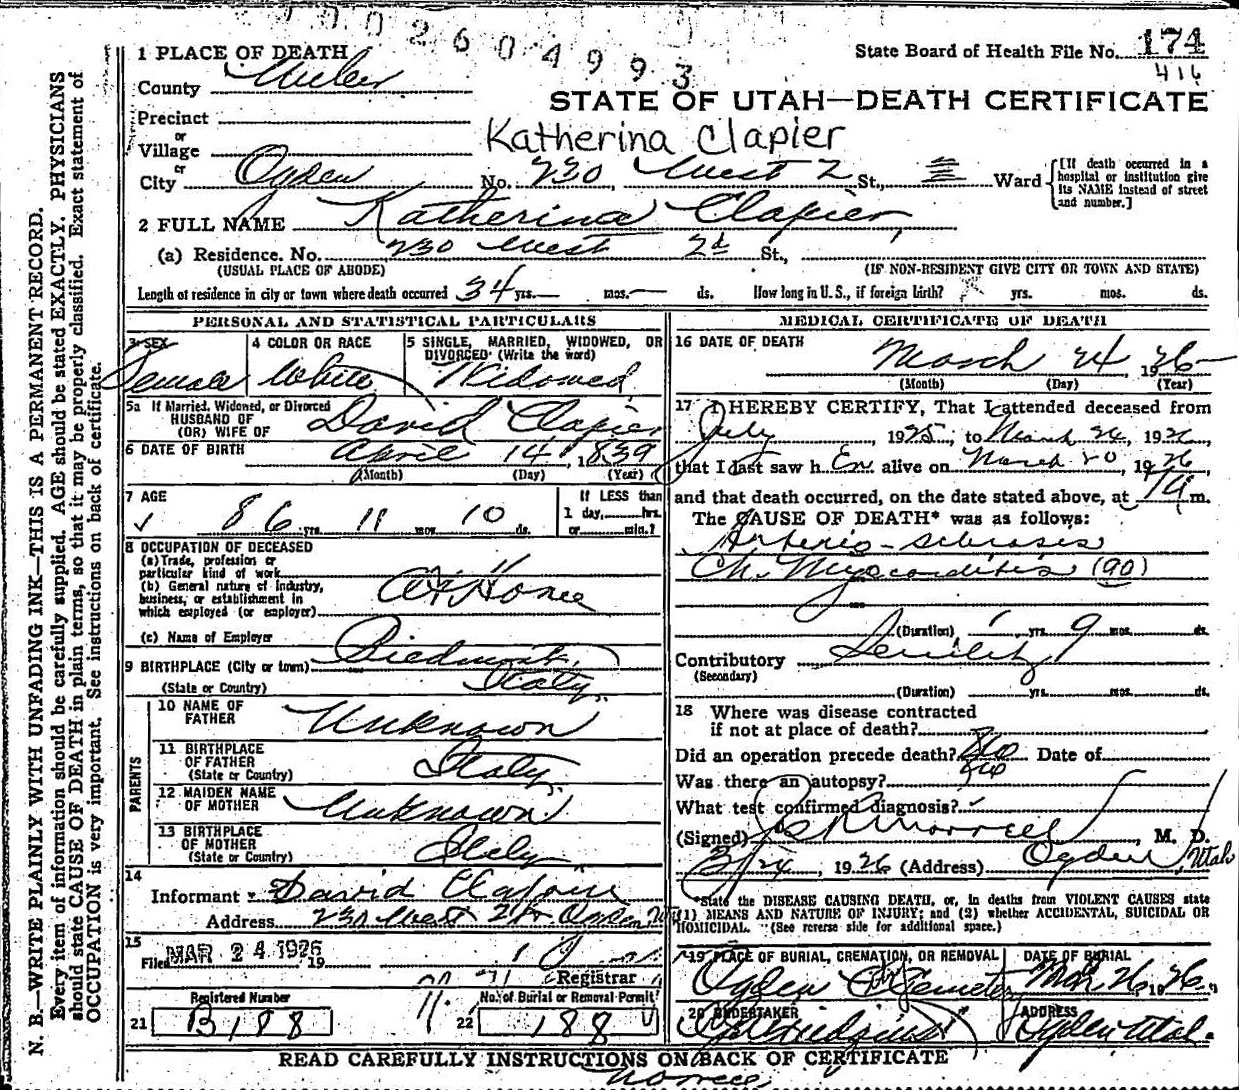 002604993
State Board of Health File No. 174
416
1 PLACE OF DEATH
County Weber
STATE OF UTAH—DEATH CERTIFICATE
Precinct
or
Village
Katherina Clapier
or
City Ogden No. 230 West 2 St., Ward
[If death occurred in a hospital or institution give its NAME instead of street and number.]
2 FULL NAME Katherina Clapier
(a) Residence. No. 230 West 2d St.,
(USUAL PLACE OF ABODE) (IF NON-RESIDENT GIVE CITY OR TOWN AND STATE)
Length of residence in city or town where death occurred 34 yrs.— mos.— ds. How long in U.S., if foreign birth? yrs. mos. ds.
PERSONAL AND STATISTICAL PARTICULARS
3 SEX
Female
4 COLOR OR RACE
White
5 SINGLE, MARRIED, WIDOWED, OR
DIVORCED (Write the word)
Widowed
5a If Married, Widowed, or Divorced
HUSBAND OF
(OR) WIFE OF
David Clapier
6 DATE OF BIRTH April 14, 1839
(Month) (Day) (Year)
7 AGE
86 yrs. 11 mos. 10 ds.
If LESS than
1 day, hrs.
or min.?
8 OCCUPATION OF DECEASED
(a) Trade, profession or
particular kind of work
(b) General nature of industry,
business, or establishment in
which employed (or employer)
At Home
(c) Name of Employer
9 BIRTHPLACE (City or town) Piedmont,
(State or Country) Italy
PARENTS
10 NAME OF
FATHER
Unknown
11 BIRTHPLACE
OF FATHER
(State or Country)
Italy
12 MAIDEN NAME
OF MOTHER
Unknown
13 BIRTHPLACE
OF MOTHER
(State or Country)
Italy
14
Informant David Clapier
Address 230 West 2d Ogden
15
Filed MAR 24 1926 19
Registrar
21 Registered Number
B188
22 No. of Burial or Removal Permit
188
MEDICAL CERTIFICATE OF DEATH
16 DATE OF DEATH
March 24 1926
(Month) (Day) (Year)
17 I HEREBY CERTIFY, That I attended deceased from
July, 1925, to March 24, 1926,
that I last saw her alive on March 20, 1926,
and that death occurred, on the date stated above, at m.
The CAUSE OF DEATH* was as follows:
Arterio-sclerosis
Ch. Myocarditis (90)
(Duration) yrs. 9 mos. ds.
Contributory Senility
(Secondary)
(Duration) yrs. mos. ds.
18 Where was disease contracted
if not at place of death?
Did an operation precede death? No Date of
Was there an autopsy? No
What test confirmed diagnosis?
(Signed) Morrell M. D.
3/24, 1926 (Address) Ogden, Utah
*State the DISEASE CAUSING DEATH, or, in deaths from VIOLENT CAUSES state
(1) MEANS AND NATURE OF INJURY; and (2) whether ACCIDENTAL, SUICIDAL OR
HOMICIDAL. (See reverse side for additional space.)
19 PLACE OF BURIAL, CREMATION, OR REMOVAL
Ogden Cemetery
DATE OF BURIAL
Mar. 26, 1926
20 UNDERTAKER
ADDRESS
Ogden Utah.
READ CAREFULLY INSTRUCTIONS ON BACK OF CERTIFICATE
N. B.—WRITE PLAINLY WITH UNFADING INK—THIS IS A PERMANENT RECORD.
Every item of information should be carefully supplied. AGE should be stated EXACTLY. PHYSICIANS
should state CAUSE OF DEATH in plain terms, so that it may be properly classified. Exact statement of
OCCUPATION is very important. See instructions on back of certificate.